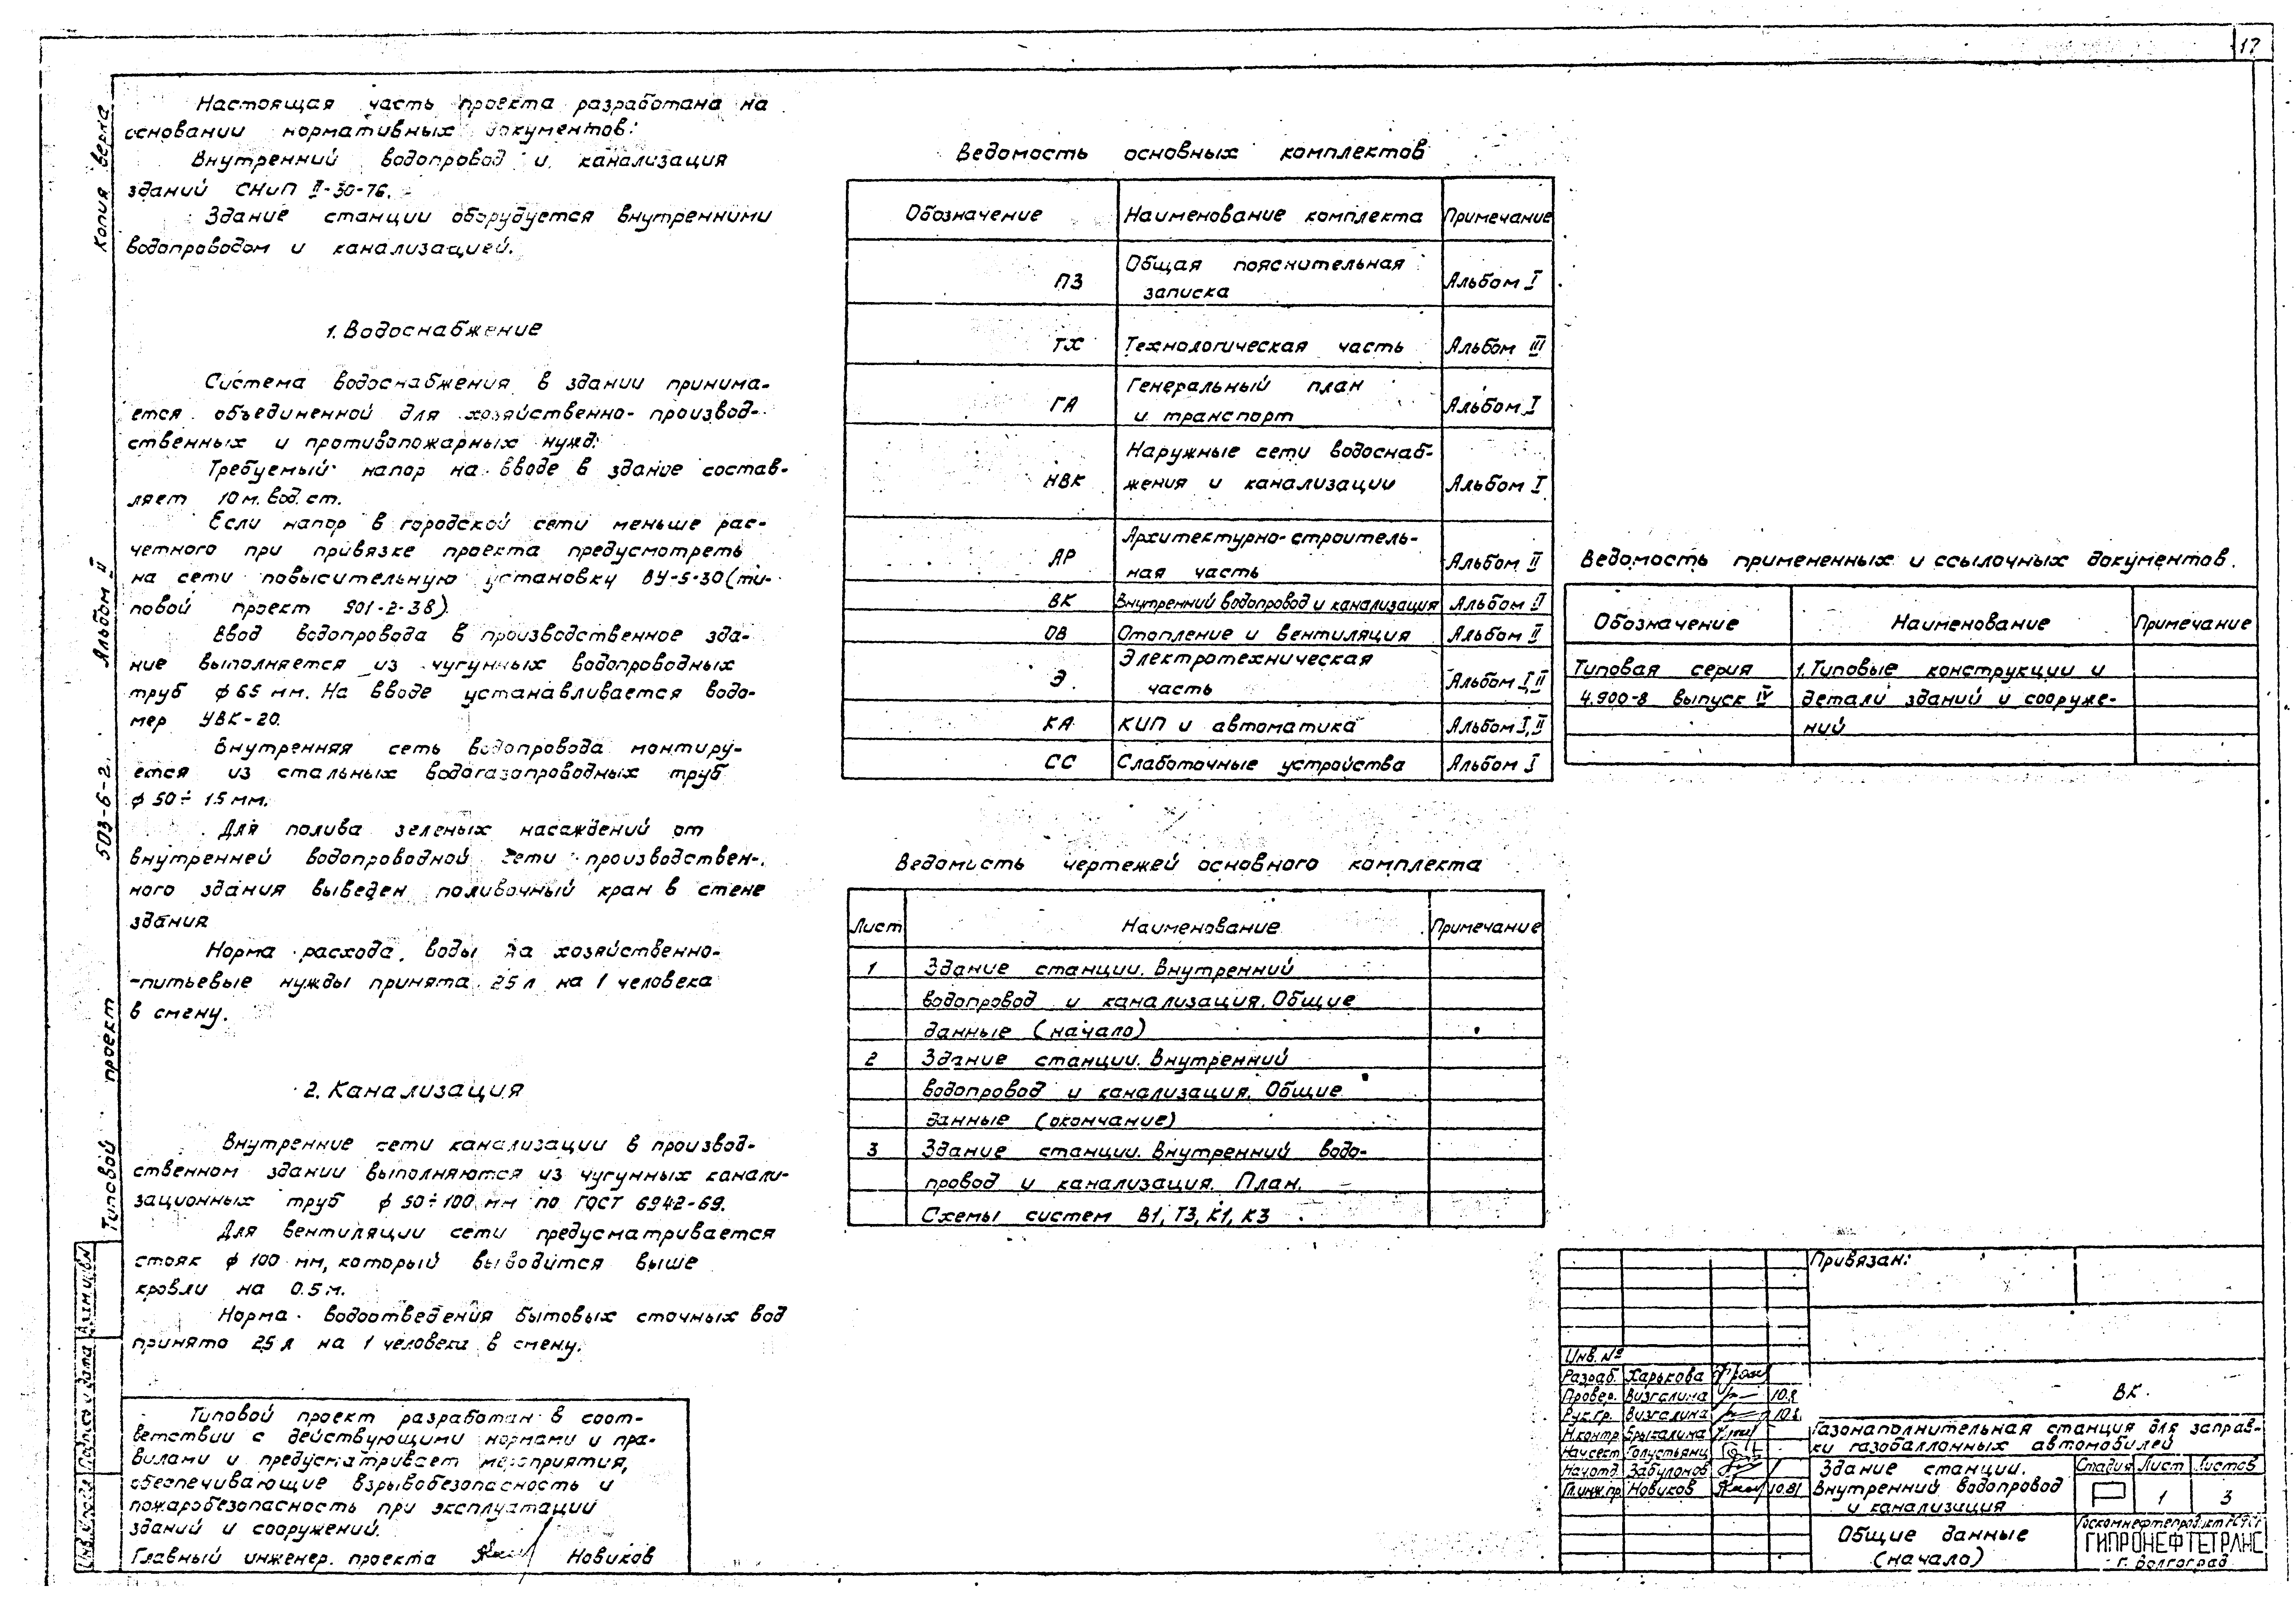 17
Копия верна
Альбом II
503-6-2.
Типовой проект
Настоящая часть проекта разработана на
основании нормативных документов:
Внутренний водопровод и канализация
зданий СНиП II-30-76.
Здание станции оборудуется внутренними
водопроводом и канализацией.
1. Водоснабжение
Система водоснабжения в здании принима-
ется объединенной для хозяйственно-производ-
ственных и противопожарных нужд.
Требуемый напор на вводе в здание состав-
ляет 10 м. вод. ст.
Если напор в городской сети меньше рас-
четного при привязке проекта предусмотреть
на сети повысительную установку ВУ-5-30 (ти-
повой проект 901-2-38).
Ввод водопровода в производственное зда-
ние выполняется из чугунных водопроводных
труб ϕ 65 мм. На вводе устанавливается водо-
мер УВК-20.
Внутренняя сеть водопровода монтиру-
ется из стальных водогазопроводных труб
ϕ 50÷15 мм.
Для полива зеленых насаждений от
внутренней водопроводной сети производствен-
ного здания выведен поливочный кран в стене
здания
Норма расхода воды на хозяйственно-
-питьевые нужды принята 25 л на 1 человека
в смену.
2. Канализация
Внутренние сети канализации в производ-
ственном здании выполняются из чугунных канали-
зационных труб ϕ 50÷100 мм по ГОСТ 6942-69.
Для вентиляции сети предусматривается
стояк ϕ 100 мм, который выводится выше
кровли на 0.5 м.
Норма водоотведения бытовых сточных вод
принято 25 л на 1 человека в смену.
Типовой проект разработан в соот-
ветствии с действующими нормами и пра-
вилами и предусматривает мероприятия,
обеспечивающие взрывобезопасность и
пожаробезопасность при эксплуатации
зданий и сооружений.
Главный инженер проекта Новиков
Взам инв N
Подпись и дата
Инв. N подл
Ведомость основных комплектов
Обозначение Наименование комплекта Примечание
ПЗ Общая пояснительная записка Альбом I
ТХ Технологическая часть Альбом III
ГА Генеральный план и транспорт Альбом I
НВК Наружные сети водоснаб-
жения и канализации Альбом I
АР Архитектурно-строитель-
ная часть Альбом II
ВК Внутренний водопровод и канализация Альбом II
ОВ Отопление и вентиляция Альбом II
Э Электротехническая часть Альбом I, II
КА КИП и автоматика Альбом I, II
СС Слаботочные устройства Альбом I
Ведомость примененных и ссылочных документов.
Обозначение Наименование Примечание
Типовая серия 1. Типовые конструкции и
4.900-8 выпуск IV детали зданий и сооруже-
ний
Ведомость чертежей основного комплекта
Лист Наименование Примечание
1 Здание станции. Внутренний
водопровод и канализация. Общие
данные (начало)
2 Здание станции. Внутренний
водопровод и канализация. Общие
данные (окончание)
3 Здание станции. Внутренний водо-
провод и канализация. План.
Схемы систем В1, Т3, К1, К3
Привязан:
Инв. №
Разраб. Харькова
Провер. Визгалина 10.8
Рук.гр. Визгалина 10.8
Н.контр
Нач.сект Галустьянц
Нач.отд. Забулонов
Гл.инж.пр Новиков 10.81
ВК.
Газонаполнительная станция для заправ-
ки газобаллонных автомобилей
Здание станции.
Внутренний водопровод
и канализация
Стадия Лист Листов
Р 1 3
Общие данные
(начало)
Госкомнефтепродукт РСФСР
ГИПРОНЕФТЕТРАНС
г. Волгоград